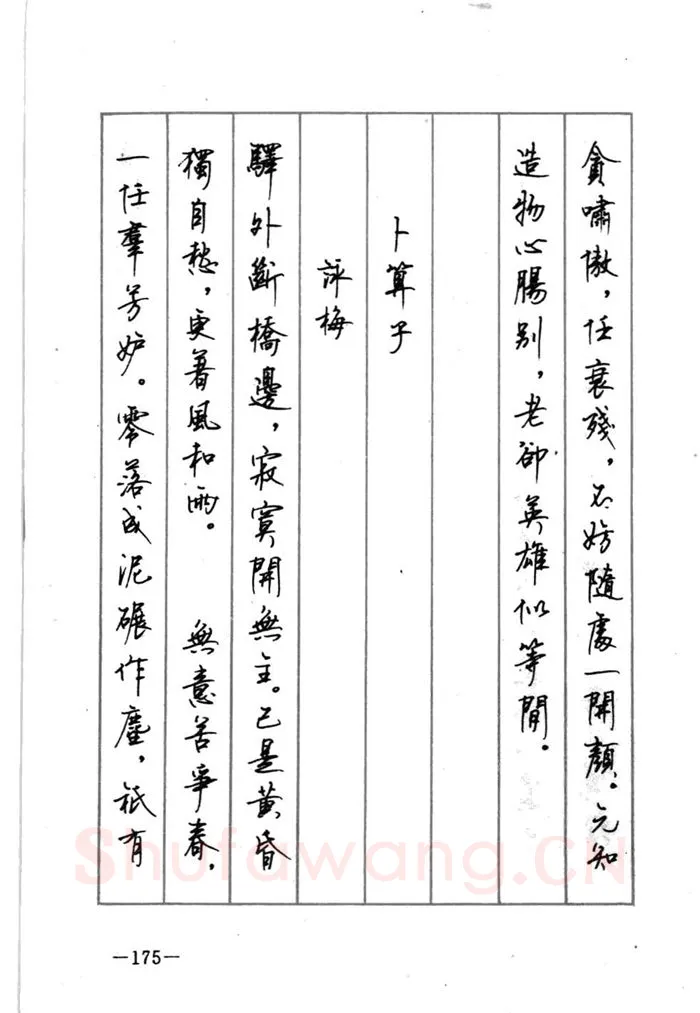 貪嘯傲，任衰殘，不妨隨處一開顏。元知
造物心腸別，老卻英雄似等閒。
卜算子
詠梅
驛外斷橋邊，寂寞開無主。已是黃昏
獨自愁，更著風和雨。　無意苦爭春，
一任羣芳妒。零落成泥碾作塵，祇有
—175—
Shufawang.CN